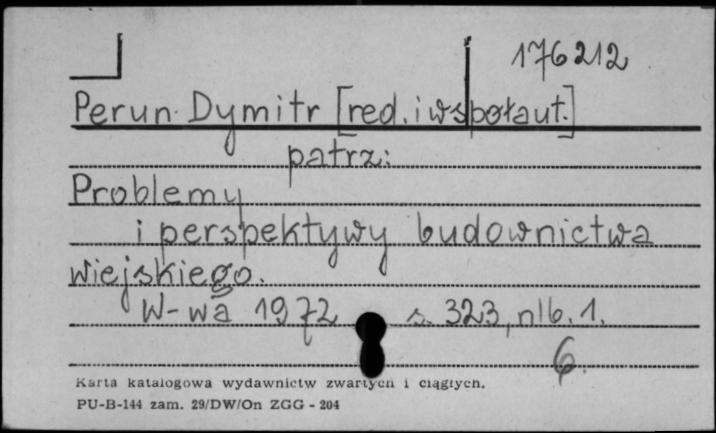 176212
Perun Dymitr [red. i współaut.]
patrz:
Problemy
i perspektywy budownictwa
wiejskiego.
W-wa 1972 s. 323, nlb. 1.
6.
Karta katalogowa wydawnictw zwartych i ciągłych.
PU-B-144 zam. 29/DW/On ZGG - 204